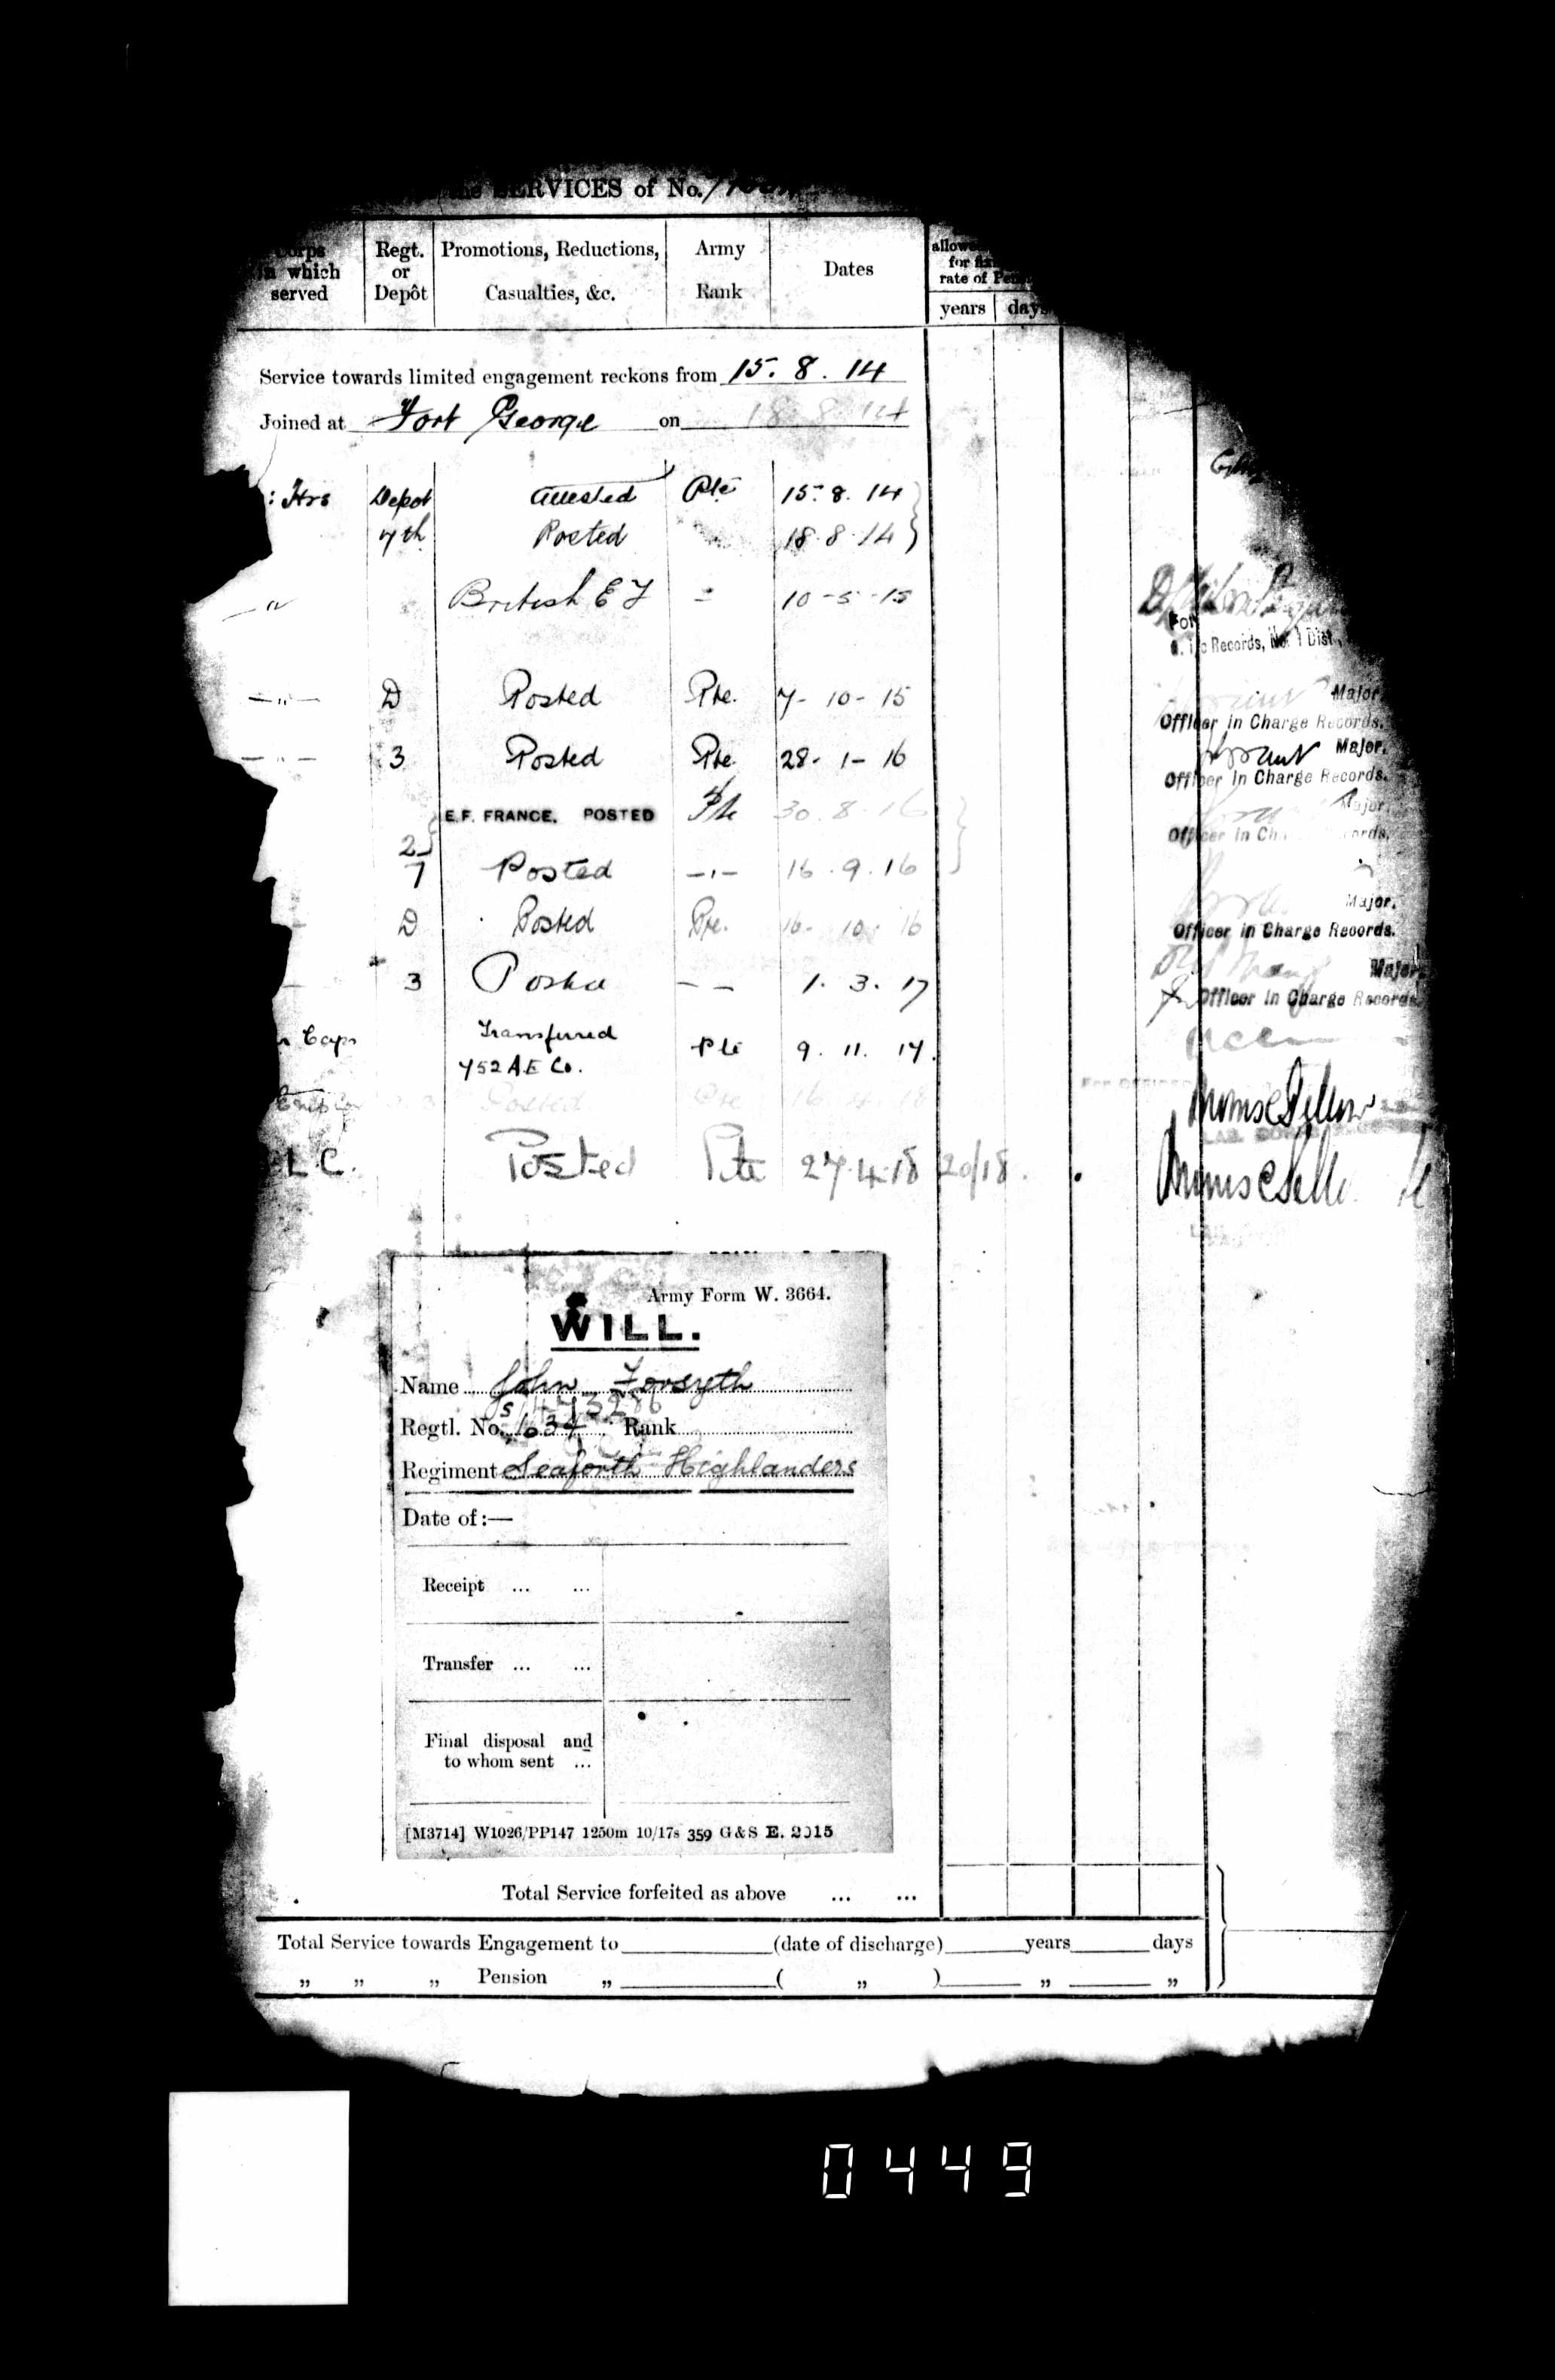 the SERVICES of No.
Corps in which served
Regt. or Depôt
Promotions, Reductions, Casualties, &c.
Army Rank
Dates
years days
Service towards limited engagement reckons from 15. 8. 14
Joined at Fort George on 18 8 14
: Hrs Depot Attested Pte 15. 8. 14
7th Posted 18. 8. 14
British E F 10-5-15
For
i/c Records, No. 1 Dist.
D Posted Pte. 7-10-15
Major
Officer in Charge Records.
3 Posted Pte. 28-1-16
Major.
Officer in Charge Records.
E.F. FRANCE. POSTED Pte 30.8.16
Major
2
7 Posted 16.9.16
D Posted Pte. 16. 10. 16
Major.
Officer in Charge Records.
3 Posted 1. 3. 17
Major
Officer in Charge Records
Transferred
752 A.E Co. Pte 9. 11. 17.
Posted Pte 16 4 18
L.C. Posted Pte 27.4.18 20/18.
Army Form W. 3664.
WILL.
Name John Forsyth
Regtl. No. S/1634 Rank
Regiment Seaforth Highlanders
Date of:—
Receipt ... ...
Transfer ... ...
Final disposal and
to whom sent ...
[M3714] W1026/PP147 1250m 10/17s 359 G & S E. 2015
Total Service forfeited as above ... ...
Total Service towards Engagement to (date of discharge) years days
„ „ „ Pension „ ( „ ) „ „
0449